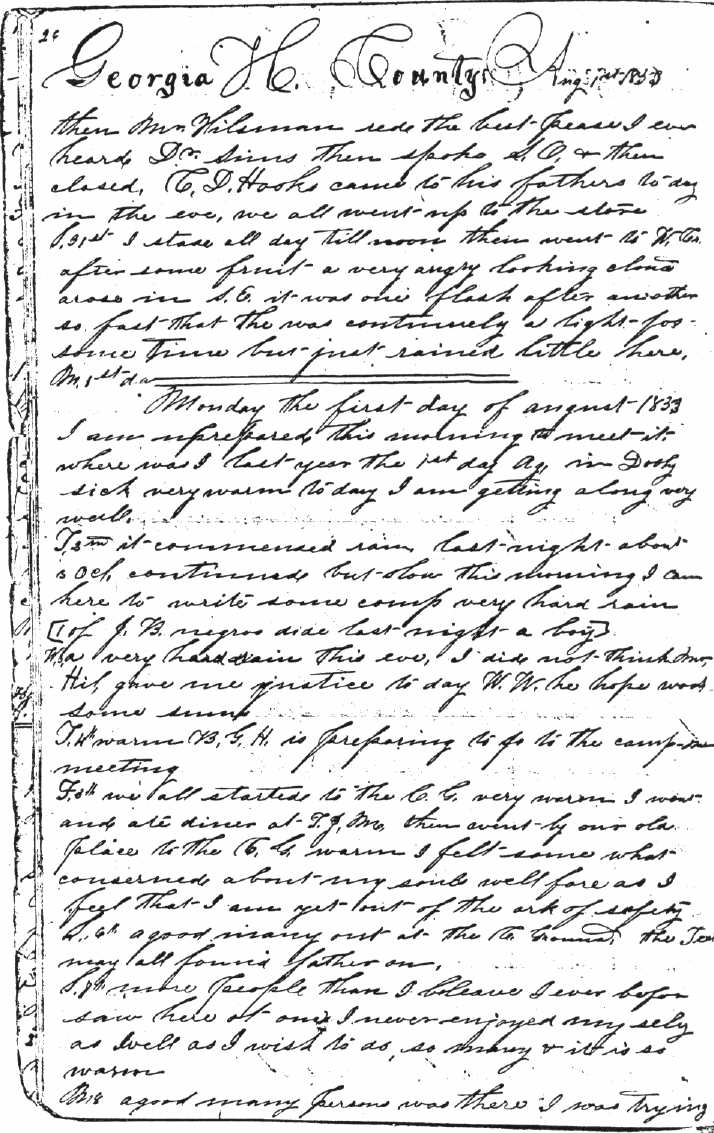 Georgia H. County Aug 1st 1853
then Mr Hilsman rede the best pease I ever
heard, Dr. Sims then spoke S. O. & then
closed, C. D. Hooks came to his fathers to day
in the eve, we all went up to the store
S. 31st I stase all day till noon then went to W. Co.
after some fruit a very angry looking cloud
arose in S. E. it was one flash after another
so fast that the was continuely a light for
some time but just rained little here,
M. 1st da
Monday the first day of august 1853
I am unprepared this morning to meet it.
where was I last year the 1st day Ag, in Dooly
sick very warm to day I am getting along very
well.
T. it commensed rain last night about
Ock, continued but slow this morning I cam
here to write some comp very hard rain
[1 of J. B. negros dide last night a boy]
W. a very hard rain this eve, I did not think Mr,
Hil, gave me justice to day W. W. he hope
some sums
T. 4th warm B. G. H. is preparing to go to the camp
meeting
F. 5th we all started to the C. G. very warm I went
and ate diner at T. J. Mc, then went by our old
place to the C. G. warm I felt some what
conserned about my souls well fare as I
feel that I am yet out of the ark of safety
S. 6th agood many out at the C. Ground, the
may all father on,
S. 7th more people than I beleave I ever befor
saw here at one, I never enjoyed my self
as well as I wish to do, so many & it is so
warm
M. 8 agood many persons was there I was trying